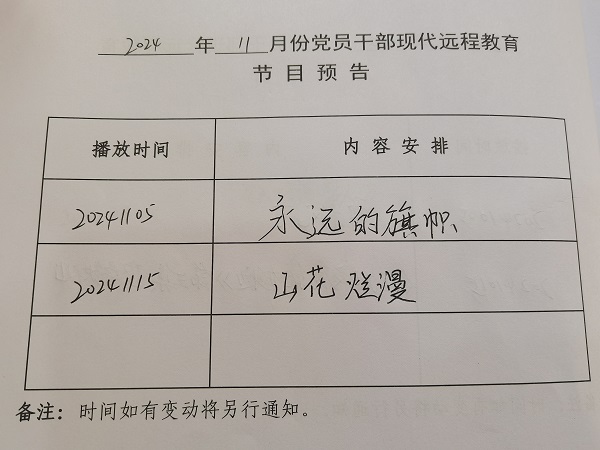 2024 年 11 月份党员干部现代远程教育
节目预告
播放时间 内容安排
20241105 永远的旗帜
20241115 山花烂漫
备注：时间如有变动将另行通知。